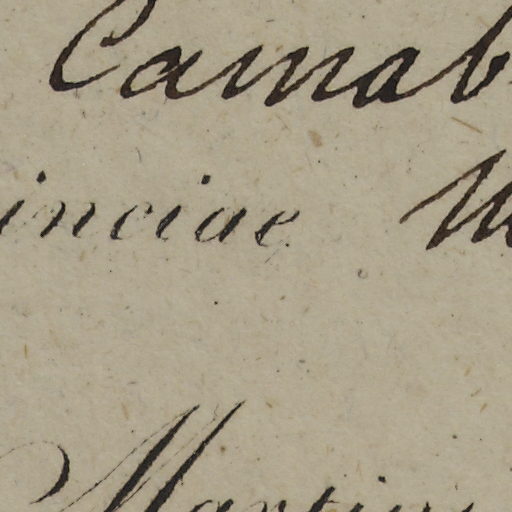 Camab
inciae M
Martius